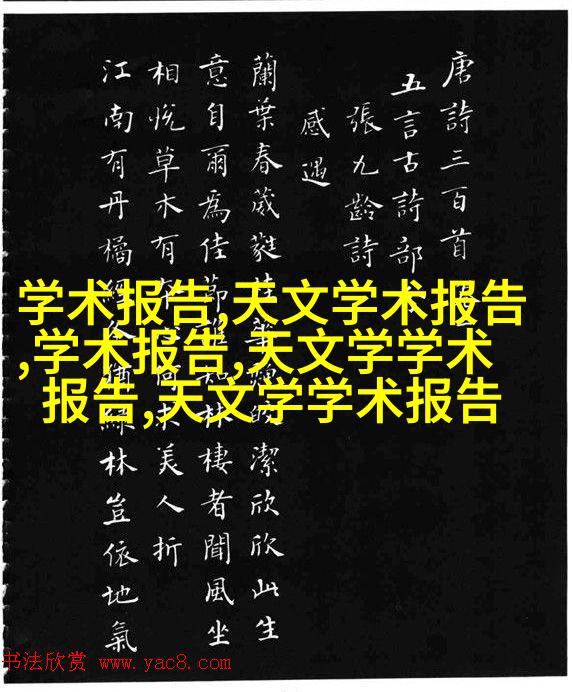 唐詩三百首
五言古詩部
張九齡詩
感遇
蘭葉春葳蕤桂華皎潔欣欣此生
意自爾爲佳節誰知林棲者聞風坐
相悅草木有本心何求美人折
江南有丹橘經冬猶綠林豈依地氣
学术报告,天文学术报告
,学术报告,天文学学术
报告,天文学学术报告
书法欣赏 www.yac8.com